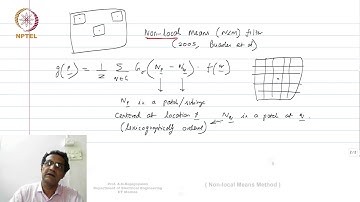 NPTEL
Non-local Means (NLM) filter
(2005, Buades et al)
ĝ(p) = 1/Z Σ Gσ (Np - Nq) · f(q)
Np is a patch/subimg
centered at location p
(lexicographically ordered)
Nq is a patch at q.
Prof. A.N.Rajagopalan
Department of Electrical Engineering
IIT Madras
( Non-local Means Method )